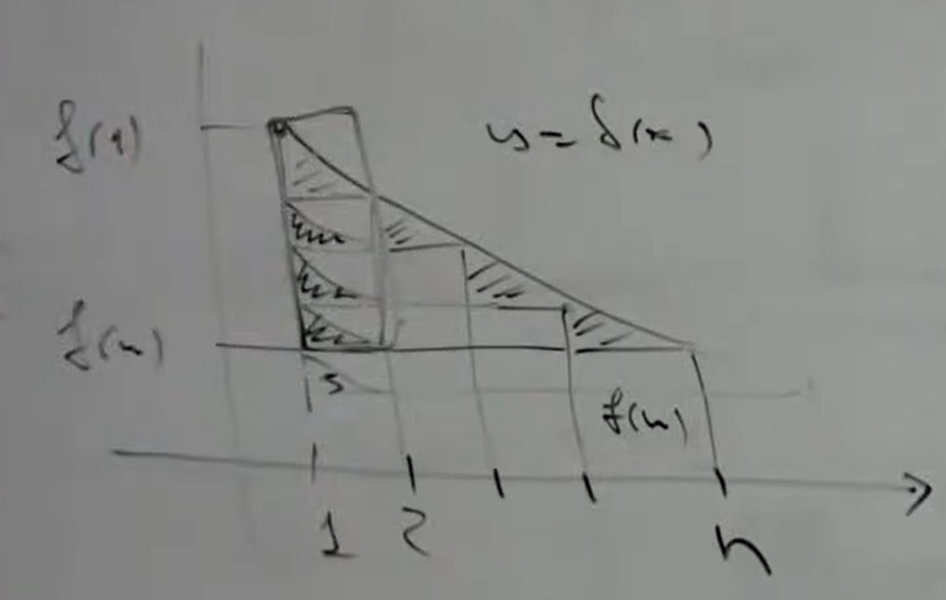 f(1)
y = f(x)
f(n)
s
f(n)
1 2 n